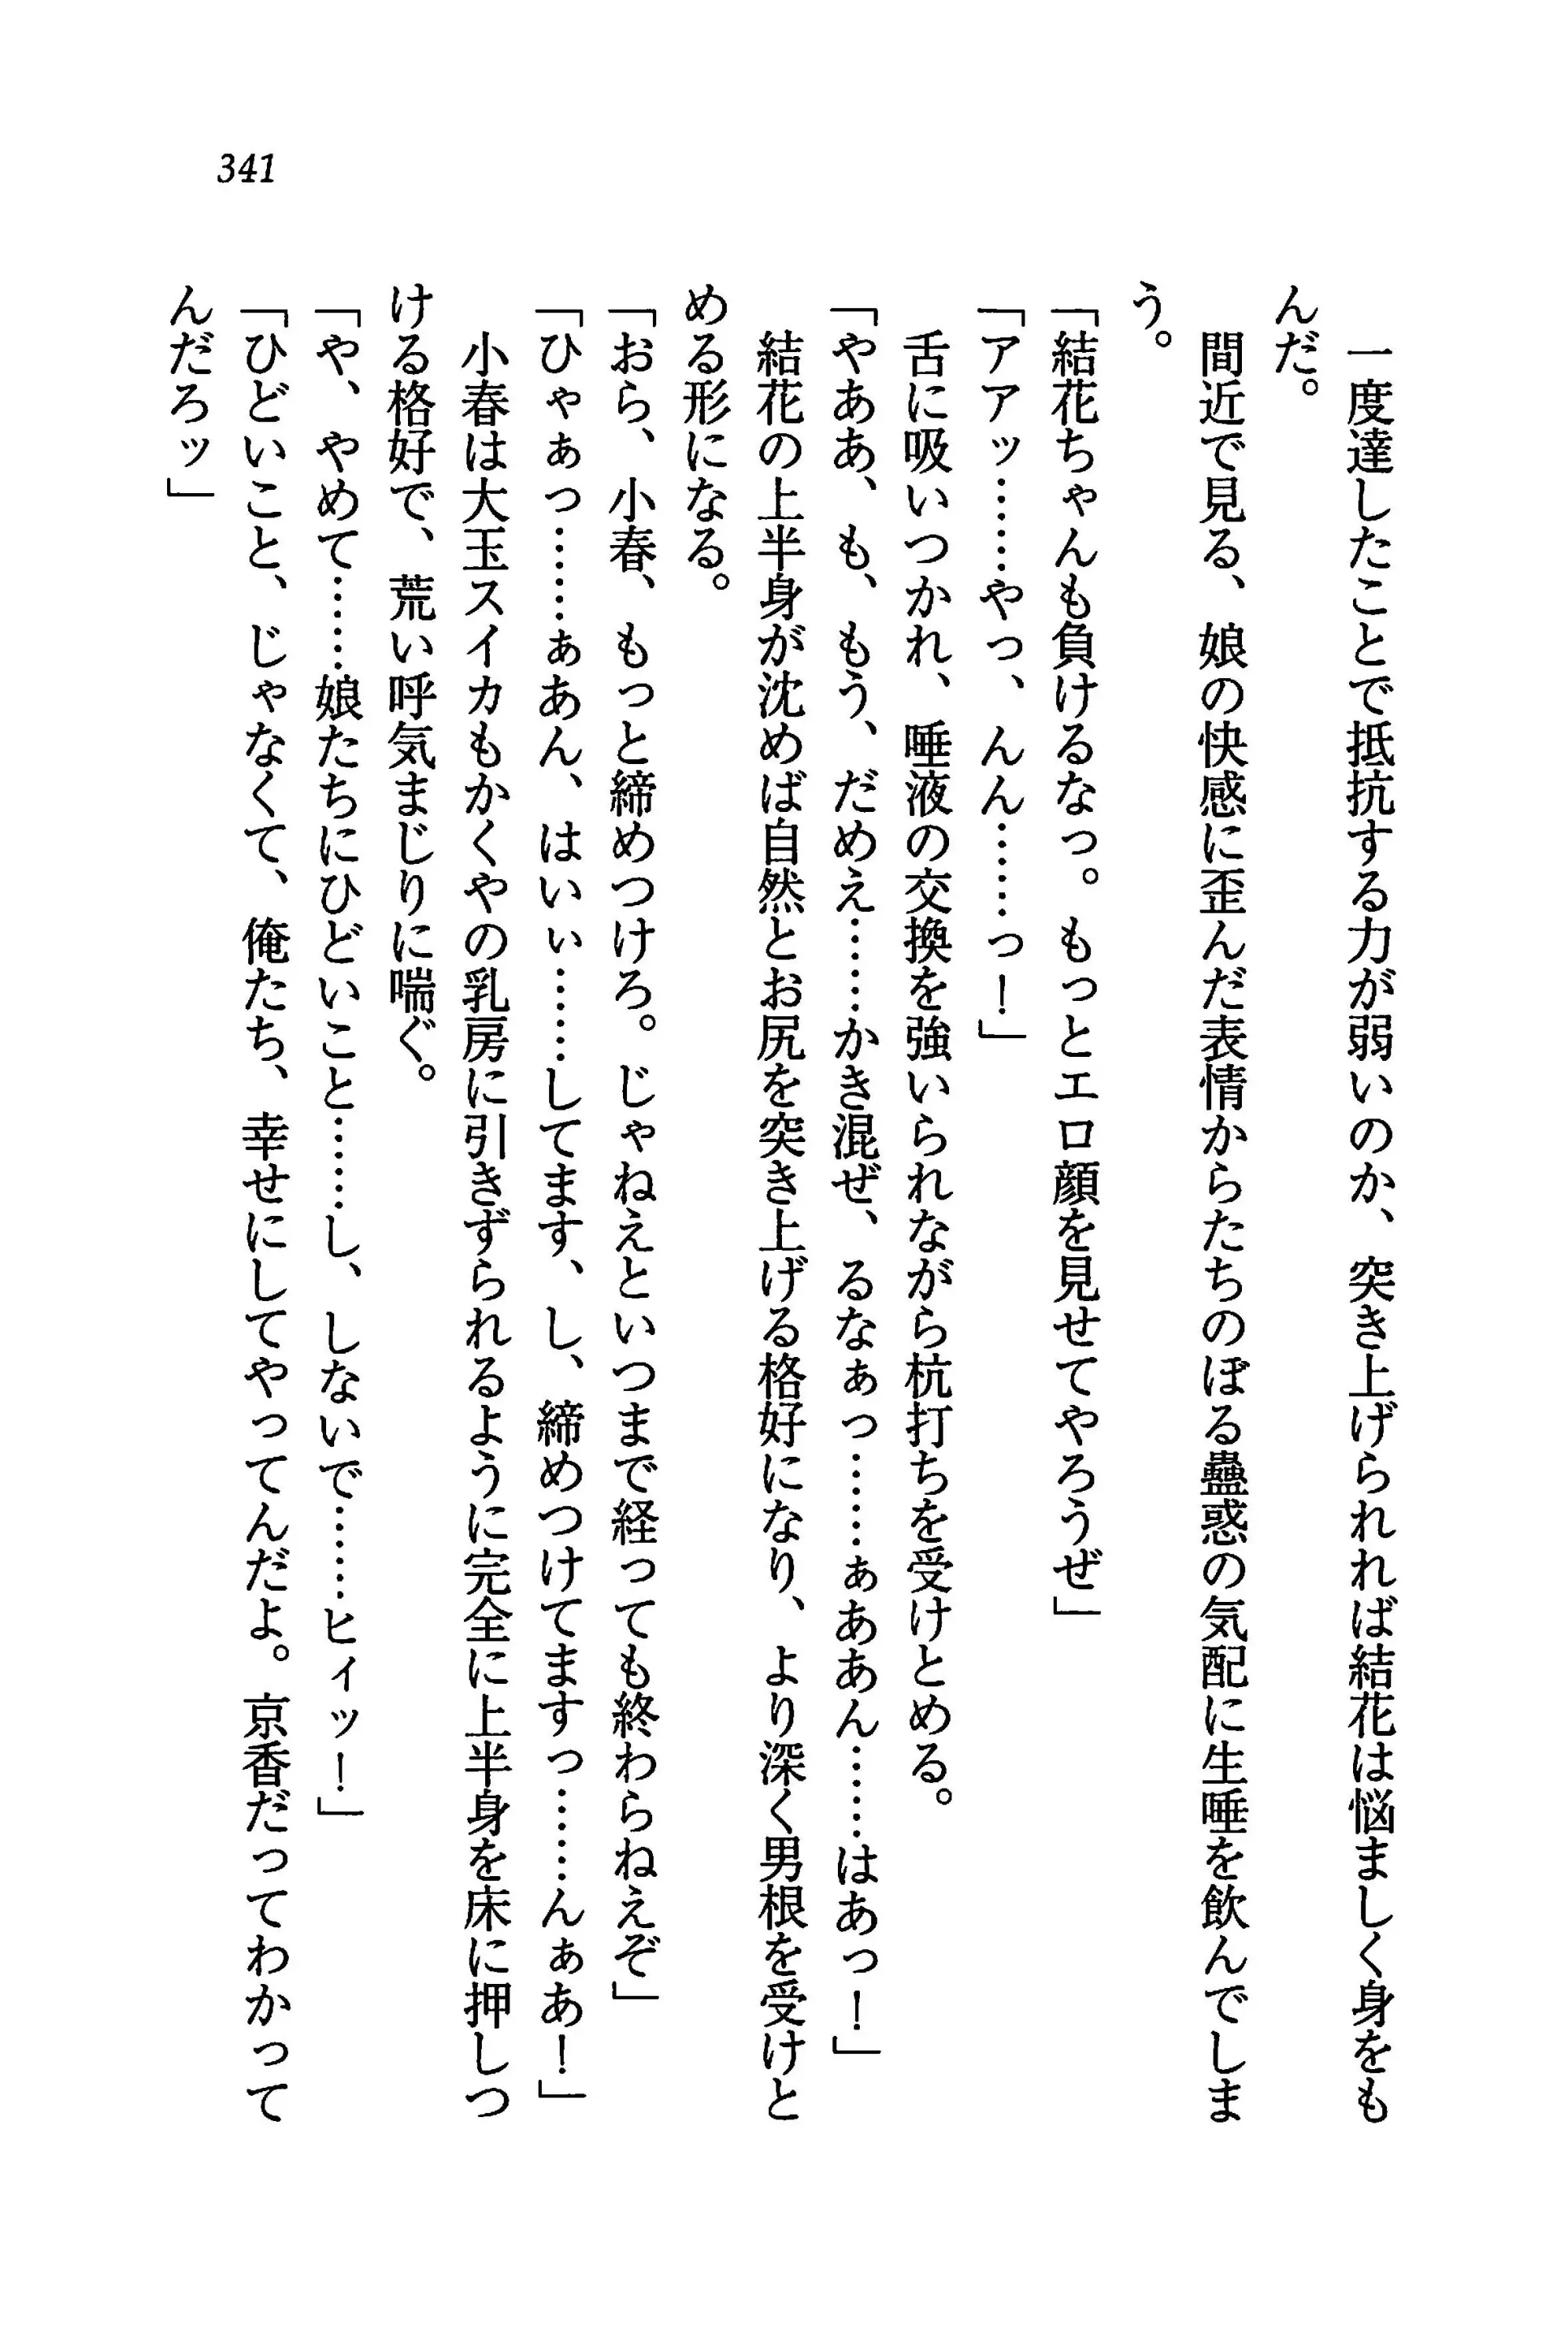 341
一度達したことで抵抗する力が弱いのか、突き上げられれば結花は悩ましく身をも
んだ。
間近で見る、娘の快感に歪んだ表情からたちのぼる蠱惑の気配に生唾を飲んでしま
う。
「結花ちゃんも負けるなっ。もっとエロ顔を見せてやろうぜ」
「アアッ……やっ、んん……っ！」
舌に吸いつかれ、唾液の交換を強いられながら杭打ちを受けとめる。
「やああ、も、もう、だめえ……かき混ぜ、るなぁっ……ぁああん……はあっ！」
結花の上半身が沈めば自然とお尻を突き上げる格好になり、より深く男根を受けと
める形になる。
「おら、小春、もっと締めつけろ。じゃねえといつまで経っても終わらねえぞ」
「ひゃぁっ……ぁあん、はいぃ……してます、し、締めつけてますっ……んぁあ！」
小春は大玉スイカもかくやの乳房に引きずられるように完全に上半身を床に押しつ
ける格好で、荒い呼気まじりに喘ぐ。
「や、やめて……娘たちにひどいこと……し、しないで……ヒィッ！」
「ひどいこと、じゃなくて、俺たち、幸せにしてやってんだよ。京香だってわかって
んだろッ」